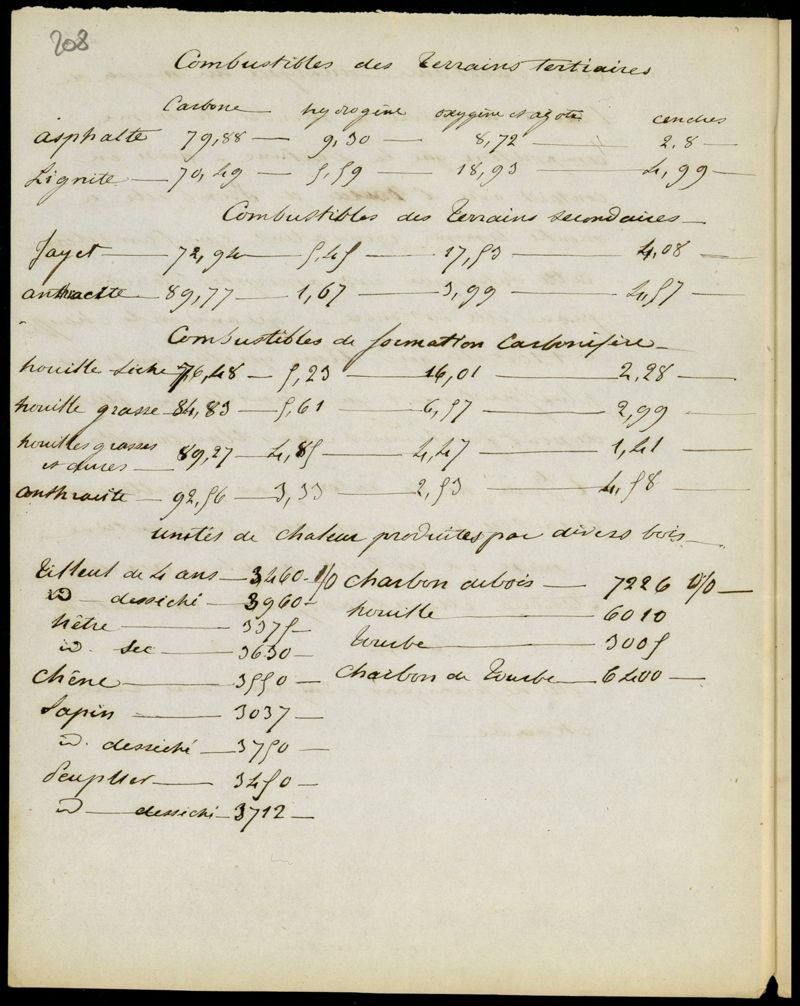 208
Combustibles des terrains tertiaires
Carbone hydrogène oxygène et azote cendres
asphalte 79,88 — 9,30 — 8,72 — 2,8 —
Lignite — 70,49 — 5,59 — 18,93 — 4,99 —
Combustibles des terrains secondaires —
Jayet — 72,94 — 5,45 — 17,53 — 4,08 —
anthracite — 89,77 — 1,67 — 3,99 — 4,57 —
Combustibles de formation Carbonifère —
houille sèche 76,48 — 5,23 — 16,01 — 2,28 —
houille grasse — 84,83 — 5,61 — 6,57 — 2,99 —
houilles grasses
et dures — 89,27 — 4,85 — 4,47 — 1,41 —
anthracite — 92,56 — 3,33 — 2,53 — 4,58 —
unités de chaleur produites par divers bois —
tilleul de 4 ans — 3460 — % Charbon de bois — 7226 % —
id desséché — 3960 — houille — 6010
hêtre — 3375 — tourbe — 3005
id. sec — 3630 — Charbon de tourbe — 6400 —
Chêne — 3550 —
Sapin — 3037 —
id. desséché — 3750 —
Peuplier — 3450 —
id — desséché — 3712 —